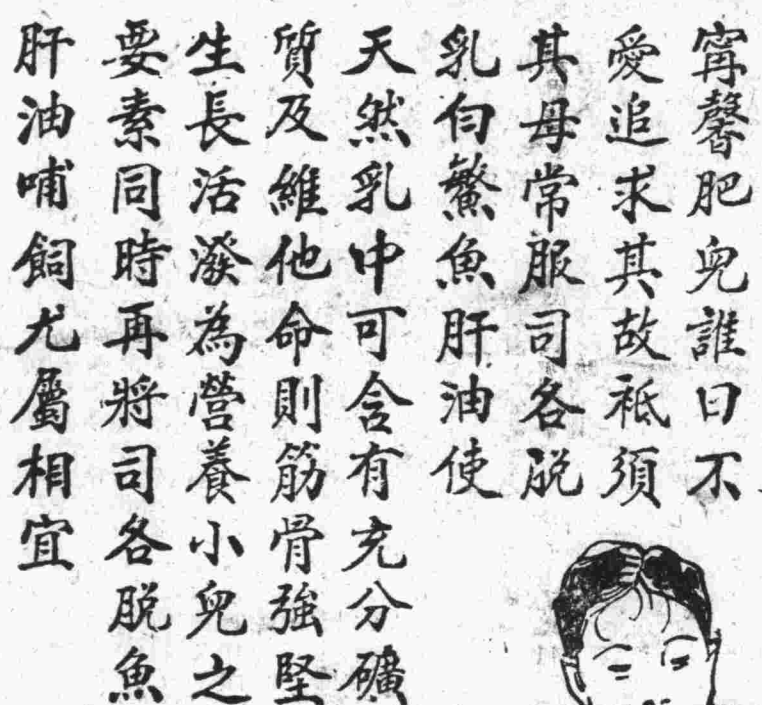 甯馨肥兒誰曰不
愛追求其故祗須
其母常服司各脱
乳白鰵魚肝油使
天然乳中可含有充分礦
質及維他命則筋骨強堅
生長活潑為營養小兒之
要素同時再將司各脱魚
肝油哺飼尤屬相宜